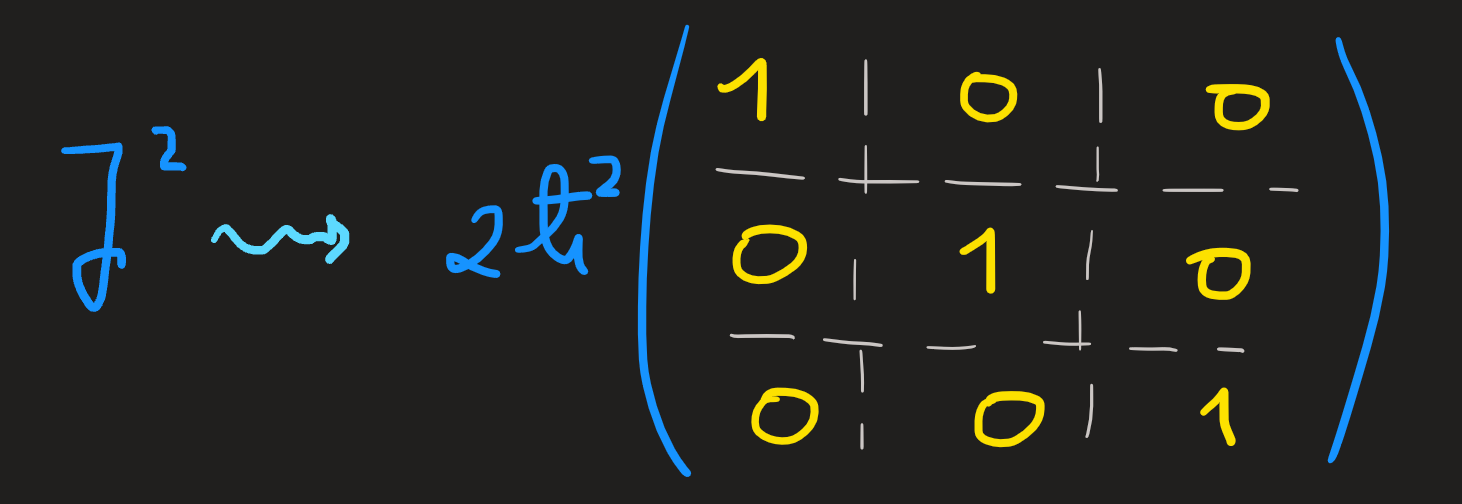 J² ⇝ 2ħ²
1 0 0
0 1 0
0 0 1